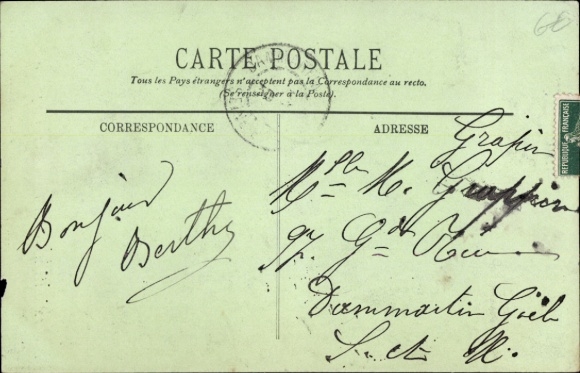 66
CARTE POSTALE
Tous les Pays étrangers n'acceptent pas la Correspondance au recto.
(Se renseigner à la Poste).
CORRESPONDANCE
ADRESSE
REPUBLIQUE FRANÇAISE
Bonjour
Berthe
Grapin
Mlle M.
97 Gde Rue
Dammartin Goële
S. et M.